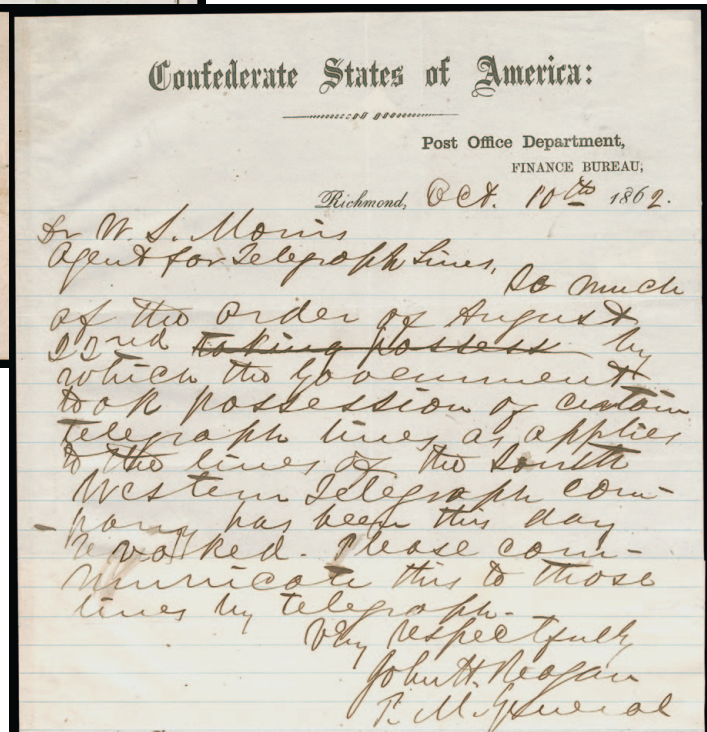 Confederate States of America:
Post Office Department,
FINANCE BUREAU,
Richmond, Oct. 10th 1862.
Dr W. S. Morris
Agent for Telegraph Lines,
So much
of the order of August
22nd taking possess by
which the Government
took possession of certain
telegraph lines as applies
to the lines of the South
Western Telegraph com-
pany has been this day
revoked. Please com-
municate this to those
lines by telegraph.
Very respectfully
John H. Reagan
P. M. General